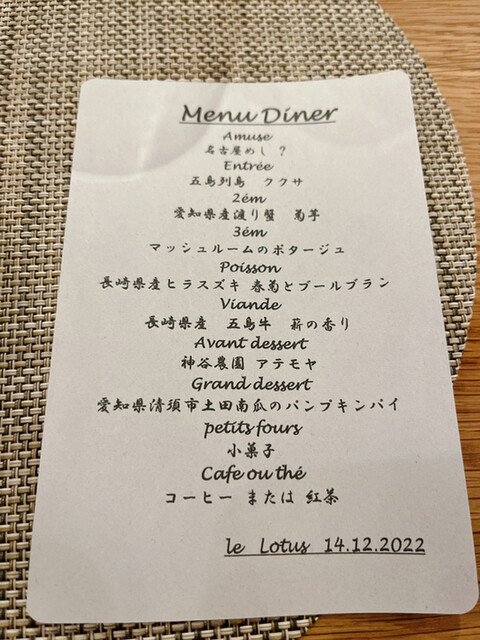 Menu Dîner
Amuse
名古屋めし ?
Entrée
五島列島 ククサ
2ém
愛知県産渡り蟹 菊芋
3ém
マッシュルームのポタージュ
Poisson
長崎県産ヒラスズキ 春菊とブールブラン
Viande
長崎県産 五島牛 薪の香り
Avant dessert
神谷農園 アテモヤ
Grand dessert
愛知県清須市土田南瓜のパンプキンパイ
petits fours
小菓子
Cafe ou thé
コーヒー または 紅茶
le Lotus 14.12.2022